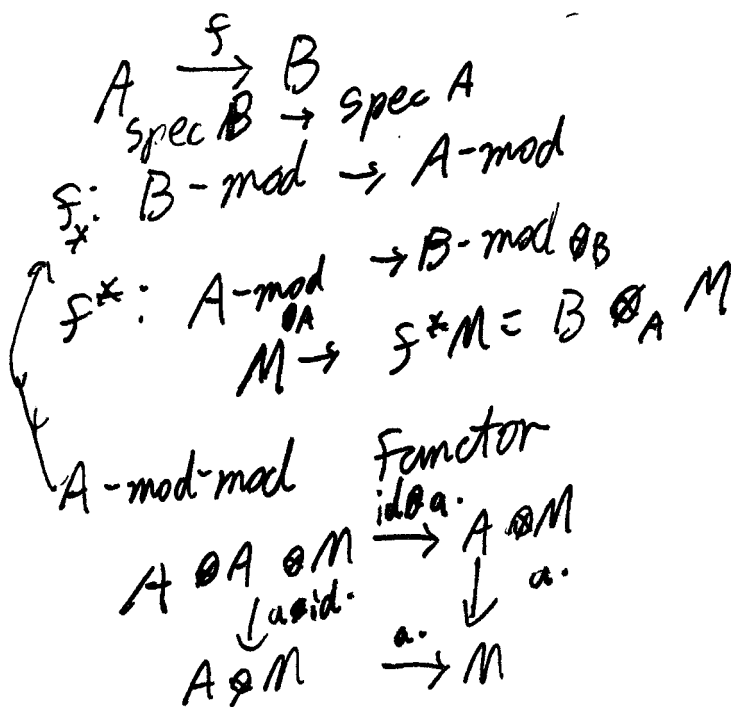 A \xrightarrow{f} B
spec B → spec A
f_*: B-mod → A-mod
f^*: A-mod ⊗_A → B-mod ⊗_B
M → f^*M = B ⊗_A M
A-mod-mod Functor
A ⊗ A ⊗ M \xrightarrow{id⊗a.} A ⊗ M
↓ a⊗id. ↓ a.
A ⊗ M \xrightarrow{a.} M